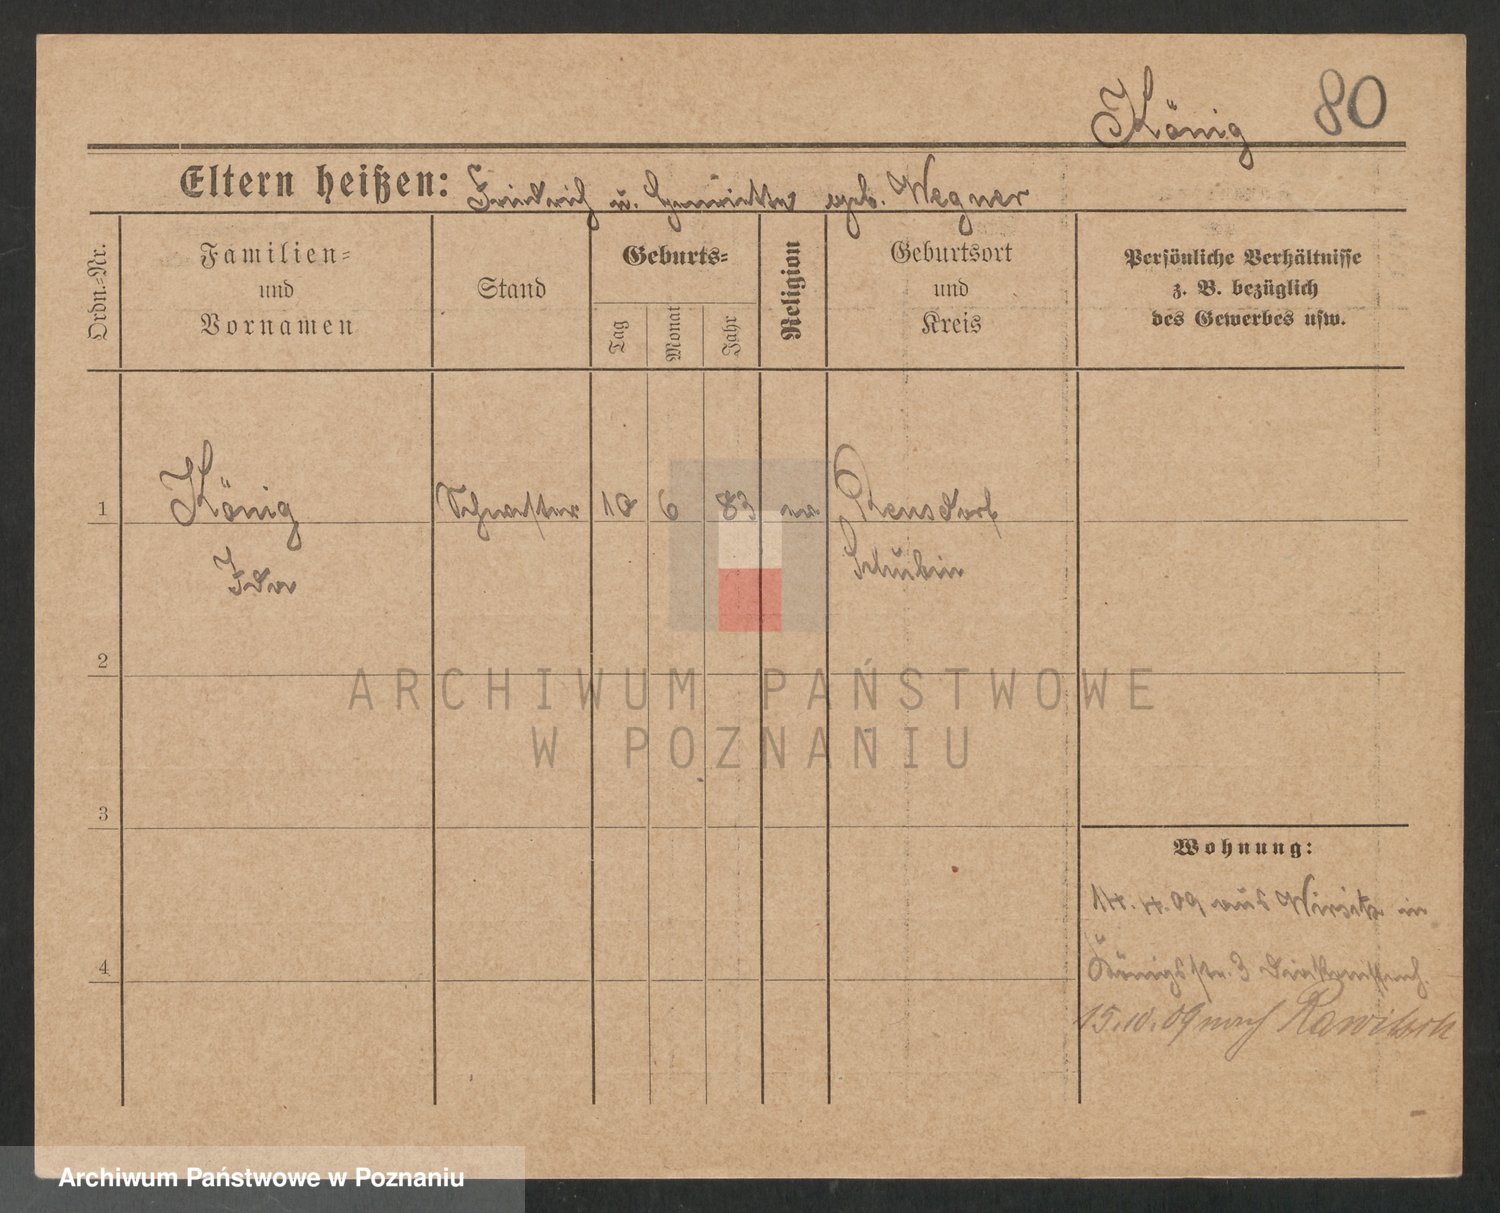 König 80
Eltern heißen: Friedrich u. Henriette geb. Wegner
Ordn.-Nr.
Familien-
und
Vornamen
Stand
Geburts-
Tag
Monat
Jahr
Religion
Geburtsort
und
Kreis
Persönliche Verhältnisse
z. B. bezüglich
des Gewerbes usw.
1 König Schwester 10 6 83 ev
Ida Schubin
2
3
4
Wohnung:
14.4.09 aus Wirsitz in
Königsstr. 3
15.10.09 nach Rawitsch
ARCHIWUM PAŃSTWOWE
W POZNANIU
Archiwum Państwowe w Poznaniu